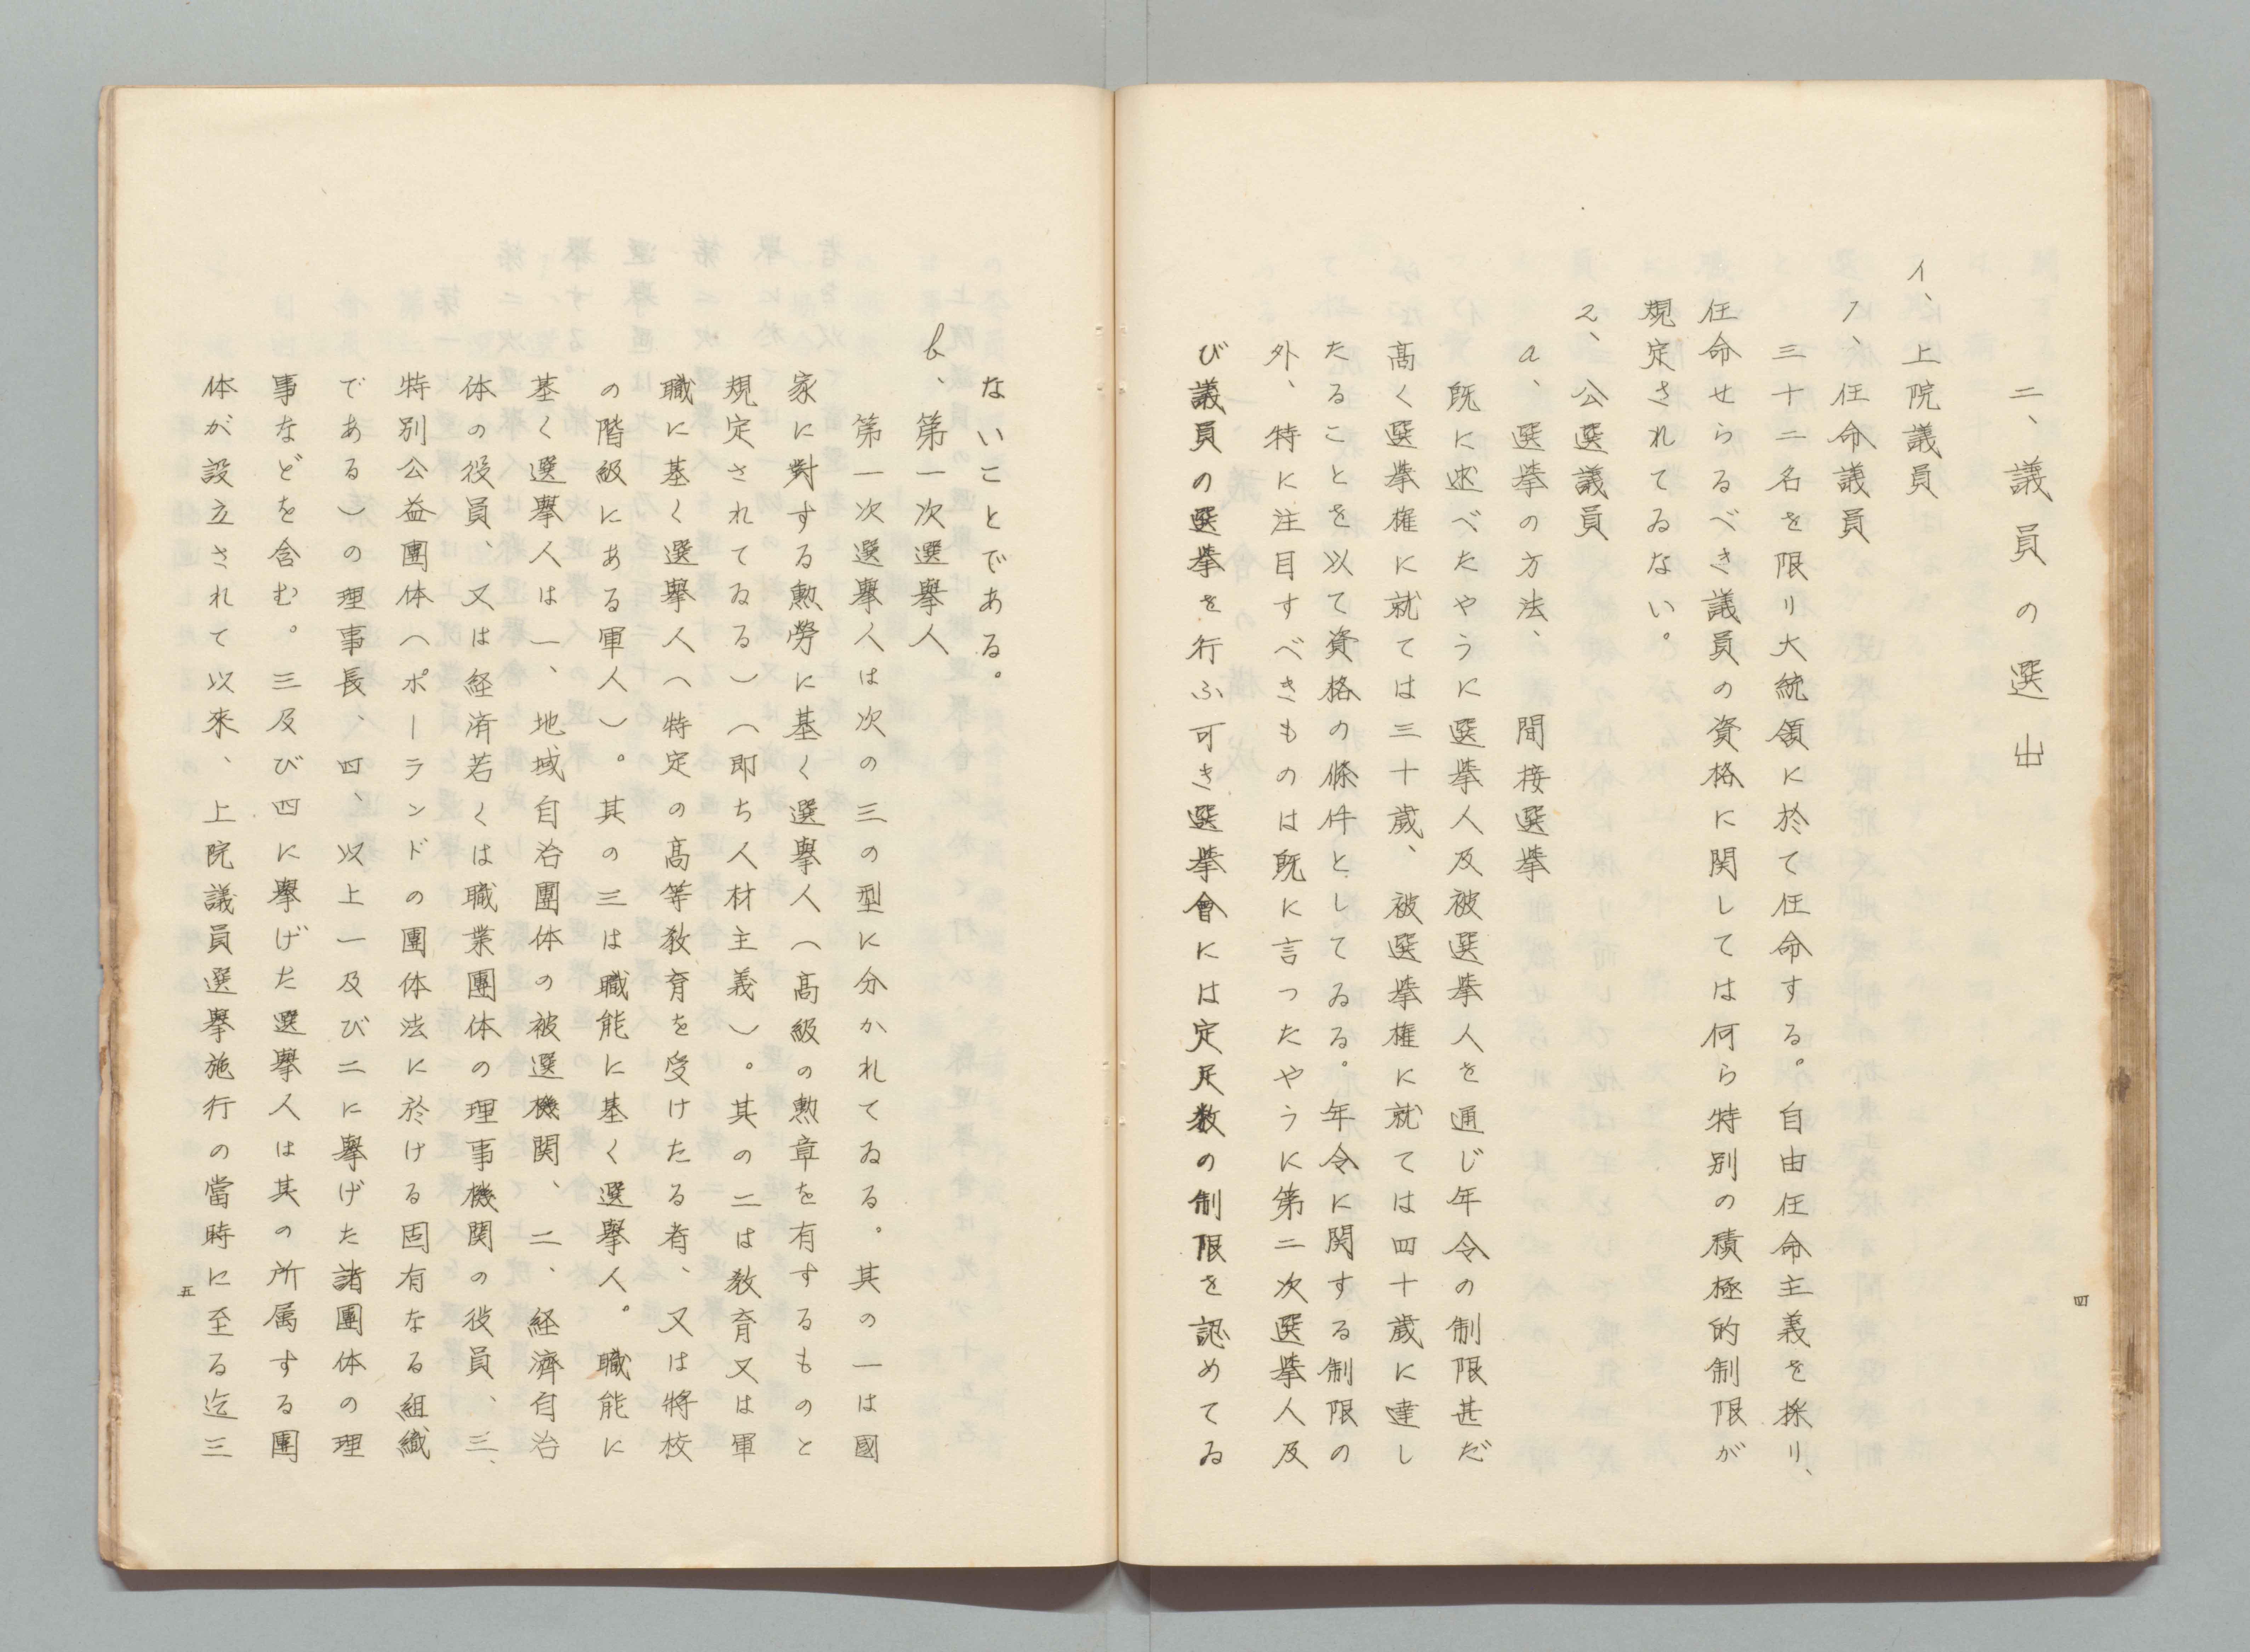 二、議員の選出
イ、上院議員
1、任命議員
三十二名を限リ大統領に於て任命する。自由任命主義を採リ、
任命せらるべき議員の資格に関しては何ら特別の積極的制限が
規定されてゐない。
2、公選議員
a、選挙の方法、 間接選挙
既に述べたやうに選挙人及被選挙人を通じ年令の制限甚だ
高く選挙権に就ては三十歳、被選挙権に就ては四十歳に達し
たることを以て資格の條件としてゐる。年令に関する制限の
外、特に注目すべきものは既に言つたやうに第二次選挙人及
び議員の選挙を行ふ可き選挙會には定足数の制限を認めてゐ
四
ないことである。
b、第一次選擧人
第一次選擧人は次の三の型に分かれてゐる。其の一は國
家に對する勲勞に基く選擧人（高級の勲章を有するものと
規定されてゐる）（即ち人材主義）。其の二は教育又は軍
職に基く選擧人（特定の高等教育を受けたる者、又は將校
の階級にある軍人）。其の三は職能に基く選擧人。職能に
基く選擧人は一、地域自治團体の被選機関、二、経濟自治
体の役員、又は経済若くは職業團体の理事機関の役員、三、
特別公益團体（ポーランドの團体法に於ける固有なる組織
である）の理事長、四、以上一及び二に擧げた諸團体の理
事などを含む。三及び四に擧げた選擧人は其の所属する團
体が設立されて以來、上院議員選擧施行の當時に至る迄三
五